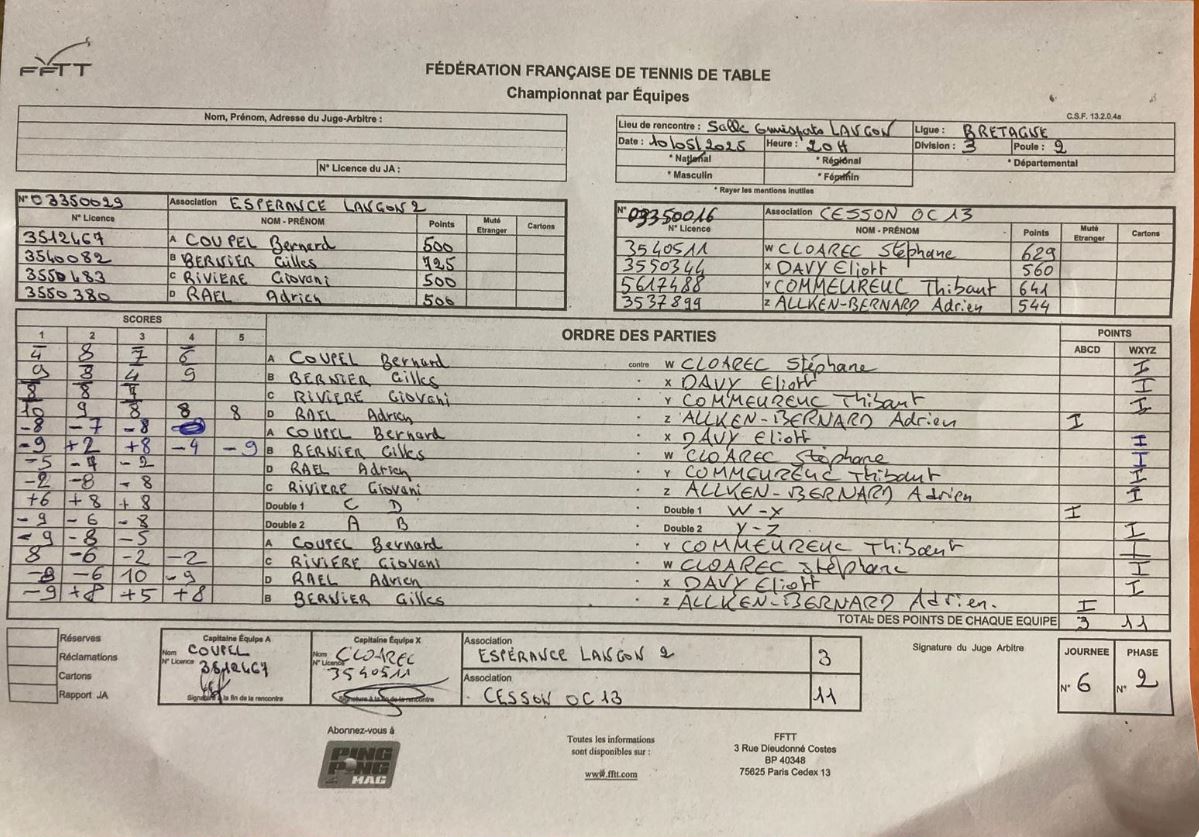 FFTT
FÉDÉRATION FRANÇAISE DE TENNIS DE TABLE
Championnat par Équipes
C.S.F. 13.2.0.4a
Nom, Prénom, Adresse du Juge-Arbitre :
N° Licence du JA :
Lieu de rencontre : Salle LANGON Ligue : BRETAGNE
Date : 10/05/2025 Heure : 20H Division : 3 Poule : 2
* National * Régional * Départemental
* Masculin * Féminin
* Rayer les mentions inutiles
N° 03350029 Association ESPERANCE LANGON 2
N° Licence NOM - PRÉNOM Points Muté Etranger Cartons
3512467 A COUPEL Bernard 500
3540082 B BERNIER Gilles 725
3550483 C RIVIERE Giovani 500
3550380 D RAEL Adrien 500
N° 03350016 Association CESSON OC 13
N° Licence NOM - PRÉNOM Points Muté Etranger Cartons
3540511 W CLOAREC Stéphane 629
3550344 X DAVY Eliott 560
5617488 Y COMMEUREUC Thibaut 641
3537899 Z ALLKEN-BERNARD Adrien 544
SCORES ORDRE DES PARTIES POINTS
1 2 3 4 5 ABCD WXYZ
-4 8 -7 -6 A COUPEL Bernard contre W CLOAREC Stéphane I
9 -3 4 9 B BERNIER Gilles X DAVY Eliott I
-8 -8 C RIVIERE Giovani Y COMMEUREUC Thibaut I
10 9 8 8 8 D RAEL Adrien Z ALLKEN-BERNARD Adrien I
-8 -7 -8 A COUPEL Bernard X DAVY Eliott I
-9 +2 +8 -4 -9 B BERNIER Gilles W CLOAREC Stéphane I
-5 -7 -2 D RAEL Adrien Y COMMEUREUC Thibaut I
-2 -8 -8 C RIVIERE Giovani Z ALLKEN-BERNARD Adrien I
+6 +8 +8 Double 1 C D Double 1 W-X I
-9 -6 -8 Double 2 A B Double 2 Y-Z I
-9 -8 -5 A COUPEL Bernard Y COMMEUREUC Thibaut I
8 -6 -2 -2 C RIVIERE Giovani W CLOAREC Stéphane I
-8 -6 10 -9 D RAEL Adrien X DAVY Eliott I
-9 +8 +5 +8 B BERNIER Gilles Z ALLKEN-BERNARD Adrien. I
TOTAL DES POINTS DE CHAQUE EQUIPE 3 11
Réserves
Réclamations
Cartons
Rapport JA
Capitaine Équipe A
Nom COUPEL
N° Licence 3512467
Signature à la fin de la rencontre
Capitaine Équipe X
Nom CLOAREC
N° Licence 3540511
Signature à la fin de la rencontre
Association
ESPÉRANCE LANGON 2 3
Association
CESSON OC 13 11
Signature du Juge Arbitre
JOURNEE PHASE
N° 6 N° 2
Abonnez-vous à
PING PONG MAG
Toutes les informations
sont disponibles sur :
www.fftt.com
FFTT
3 Rue Dieudonné Costes
BP 40348
75625 Paris Cedex 13